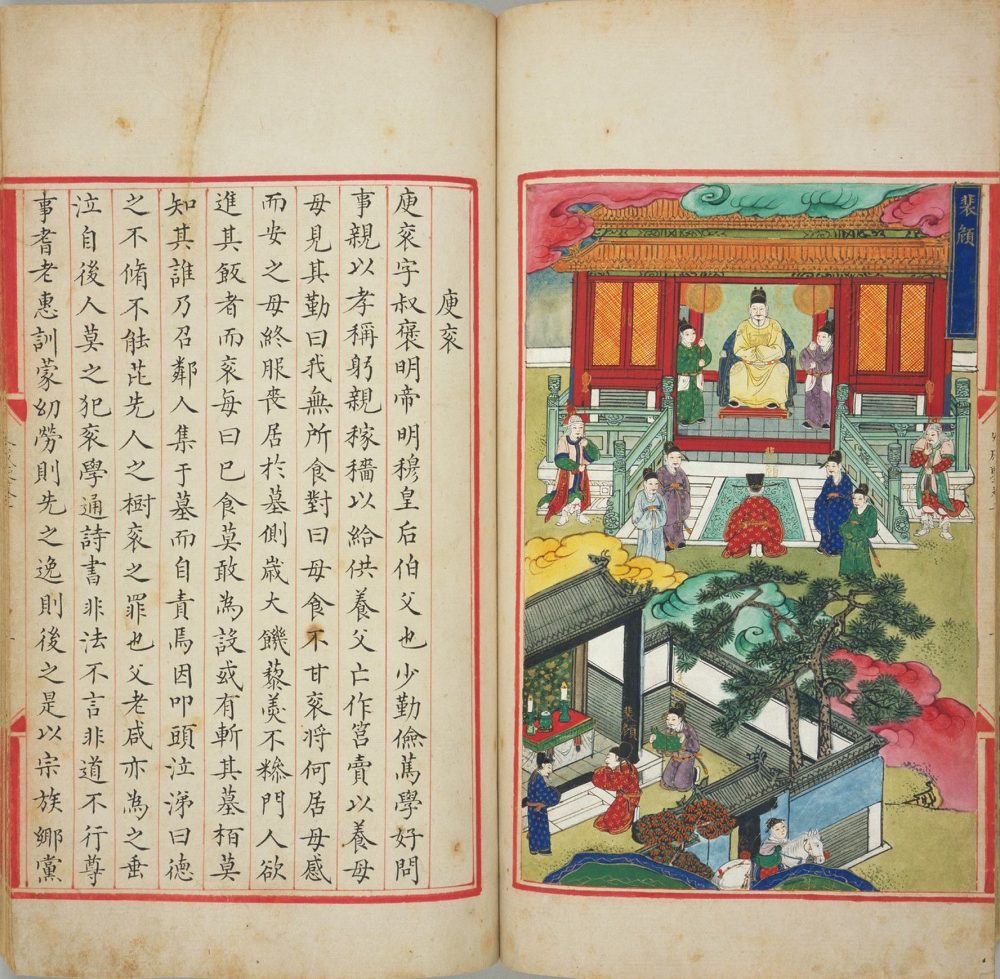 裴頠
裴頠
庾衮
庾衮字叔褒明帝明穆皇后伯父也少勤儉篤學好問
事親以孝稱躬親稼穡以給供養父亡作筥賣以養母
母見其勤曰我無所食對曰母食不甘衮將何居母感
而安之母終服喪居於墓側歲大饑藜羹不糝門人欲
進其飯者而衮每曰已食莫敢為設或有斬其墓栢莫
知其誰乃召鄰人集于墓而自責焉因叩頭泣涕曰德
之不脩不能庇先人之樹衮之罪也父老咸亦為之垂
泣自後人莫之犯衮學通詩書非法不言非道不行尊
事耆老惠訓蒙幼勞則先之逸則後之是以宗族鄉黨